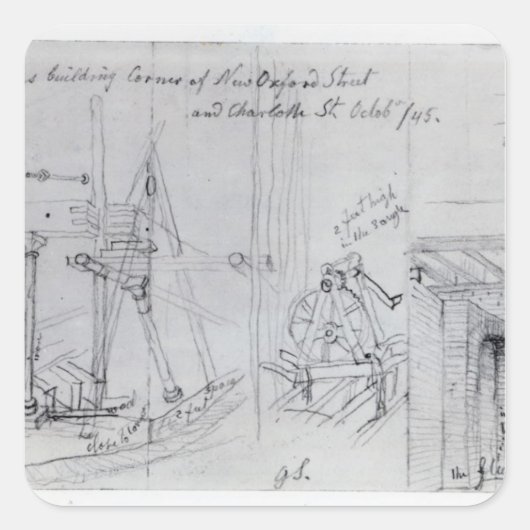 s building Corner of New Oxford Street
and Charlotte St. Octob<sup>r</sup> /45.
2 feet high
in the rough
wood
close to
2 feet space
gS.
the